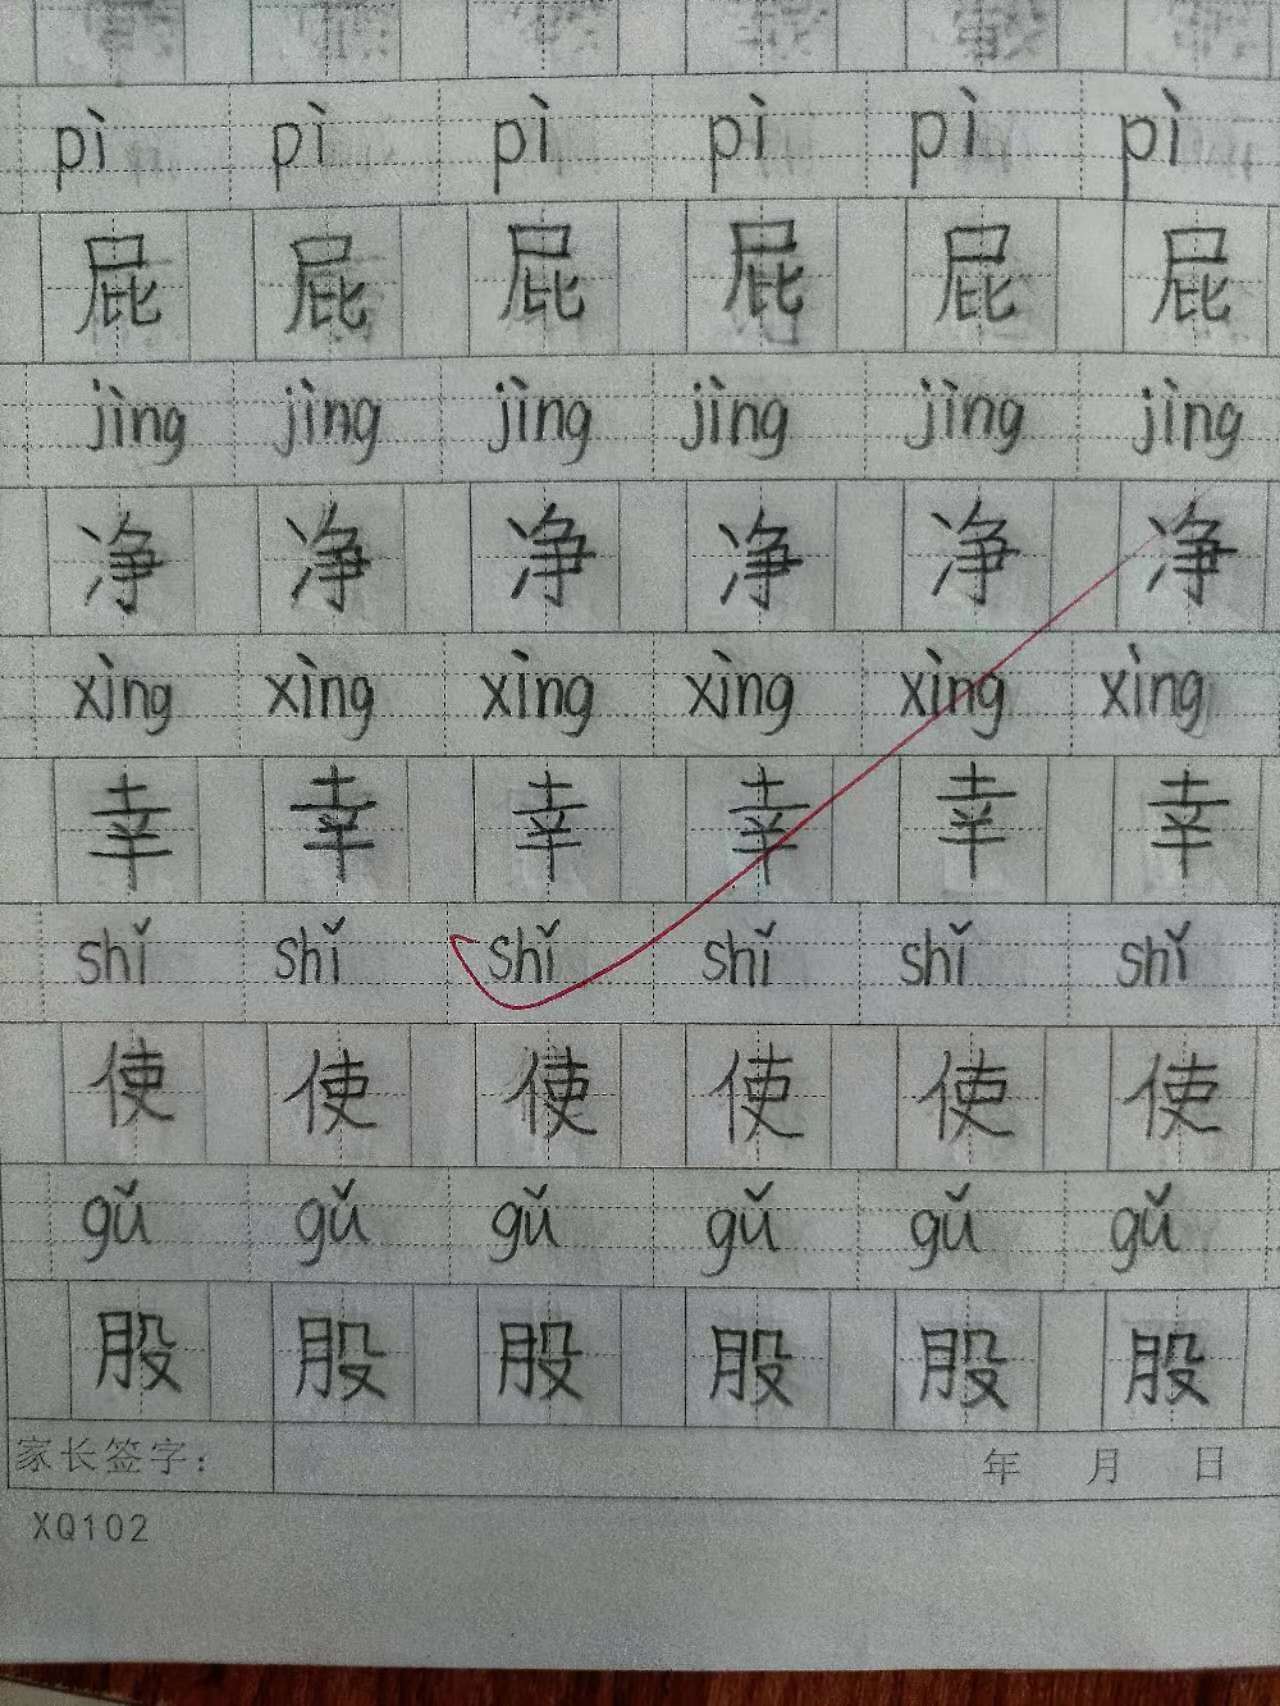 pì pì pì pì pì pì
屁 屁 屁 屁 屁 屁
jìng jìng jìng jìng jìng jìng
净 净 净 净 净 净
xìng xìng xìng xìng xìng xìng
幸 幸 幸 幸 幸 幸
shǐ shǐ shǐ shǐ shǐ shǐ
使 使 使 使 使 使
gǔ gǔ gǔ gǔ gǔ gǔ
股 股 股 股 股 股
家长签字： 年 月 日
XQ102